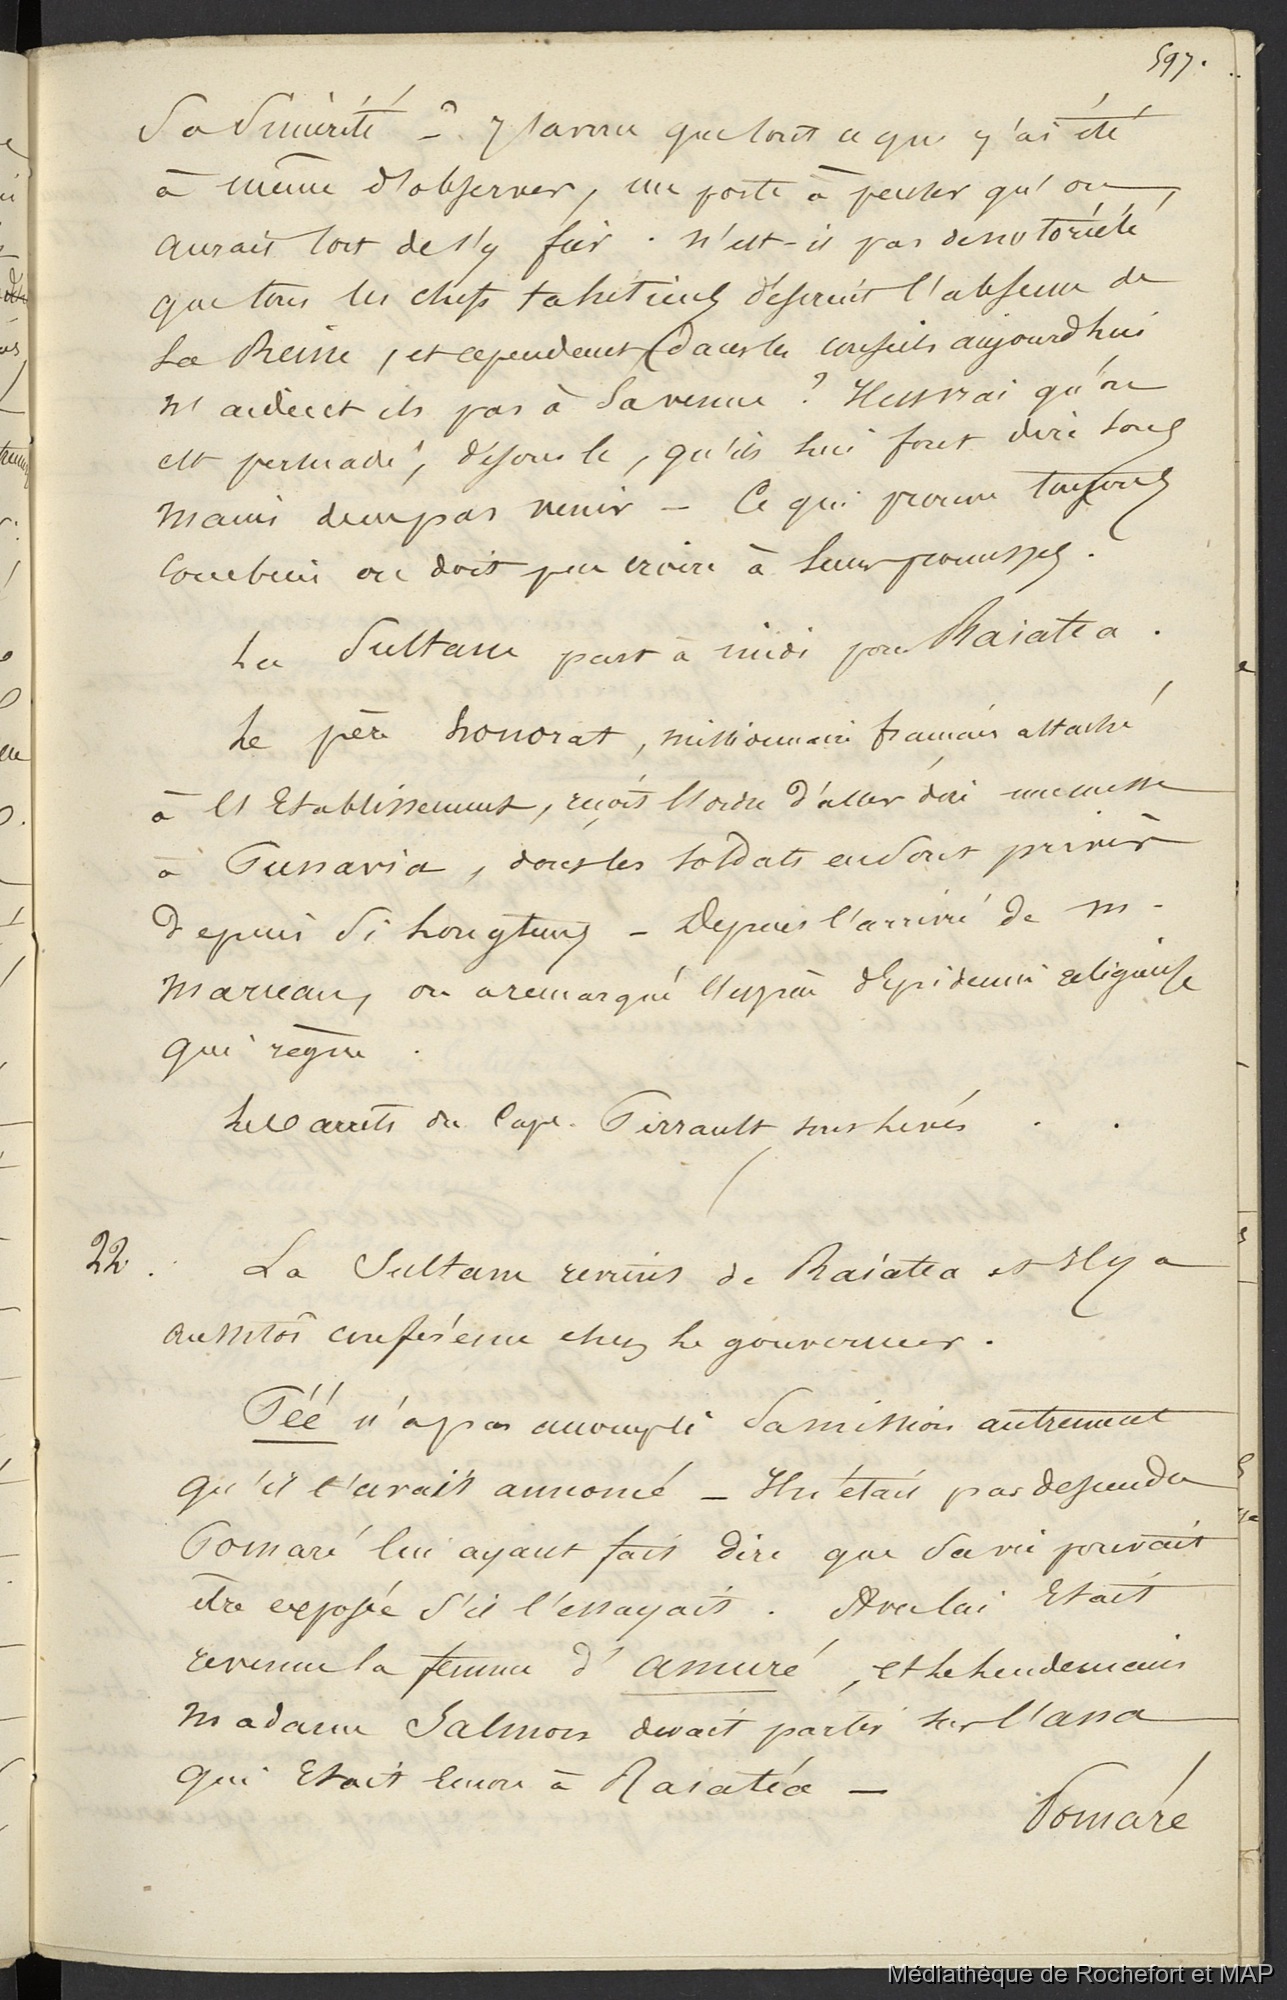 597.
Sa Sincérité – ? J'avoue que tout ce que j'ai été
à même d'observer, me porte à penser qu'on
aurait tort de s'y fier. N'est-il pas de notoriété
que tous les chefs tahitiens désirent l'absence de
La Reine, et cependant (dans les conseils aujourd'hui
n'aident ils pas à Sa venue ? Il est vrai qu'on
est persuadé, déjous le, qu'ils lui font dire sous
mains de ne pas venir – Ce qui prouve toujours
Combien on doit peu croire à leurs promesses.
La Sultane part à midi pour Raiatea.
Le père honorat, missionnaire français attaché
à l'Etablissement, reçoit l'ordre d'aller dire une messe
à Punavia, dont les soldats en Sont privés
Depuis Si Longtems – Depuis l'arrivé de M.
Marceau, on a remarqué l'espèce d'Epidemie religieuse
qui règne.
Les arrêts du Cape. Perrault sont Levés.
22. La Sultane revient de Raiatea et Il y a
aussitôt conférence chez Le gouverneur.
Téé n'a pas accompli Sa mission autrement
qu'il l'avait annoncé – Il n'était pas descendu
Pomaré lui ayant fait dire que Sa vie pouvait
être exposée S'il l'essayait. Avec lui Etait
revenue la femme d'Amuré, et le Lendemain
Madame Salmon devait partir sur l'ana
qui Etait encore à Raiatéa –
Pomaré
Médiathèque de Rochefort et MAP